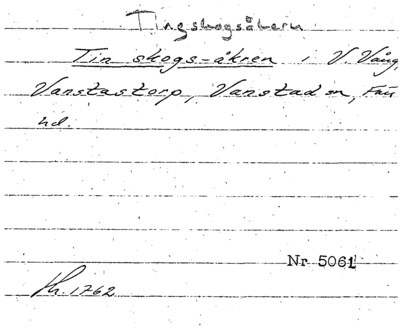 Tingskogsåkern
Tin skogs-åkren i V. Vång,
Vanstastorp, Vanstad sn, Fär
hd.
Nr 5061
Kh. 1762